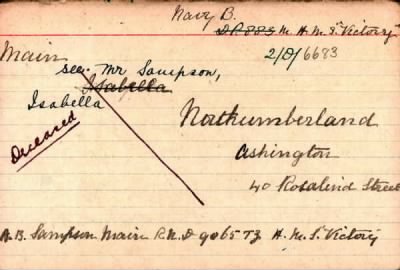 Navy B.
D.P.883 M. H.M.S. "Victory"
Main 2/D/6683
see Mr Sampson,
Isabella
Isabella
Deceased
Northumberland
Ashington
40 Rosalind Street
A.B. Sampson Main R.N.D 9065 TZ H.M.S. "Victory"